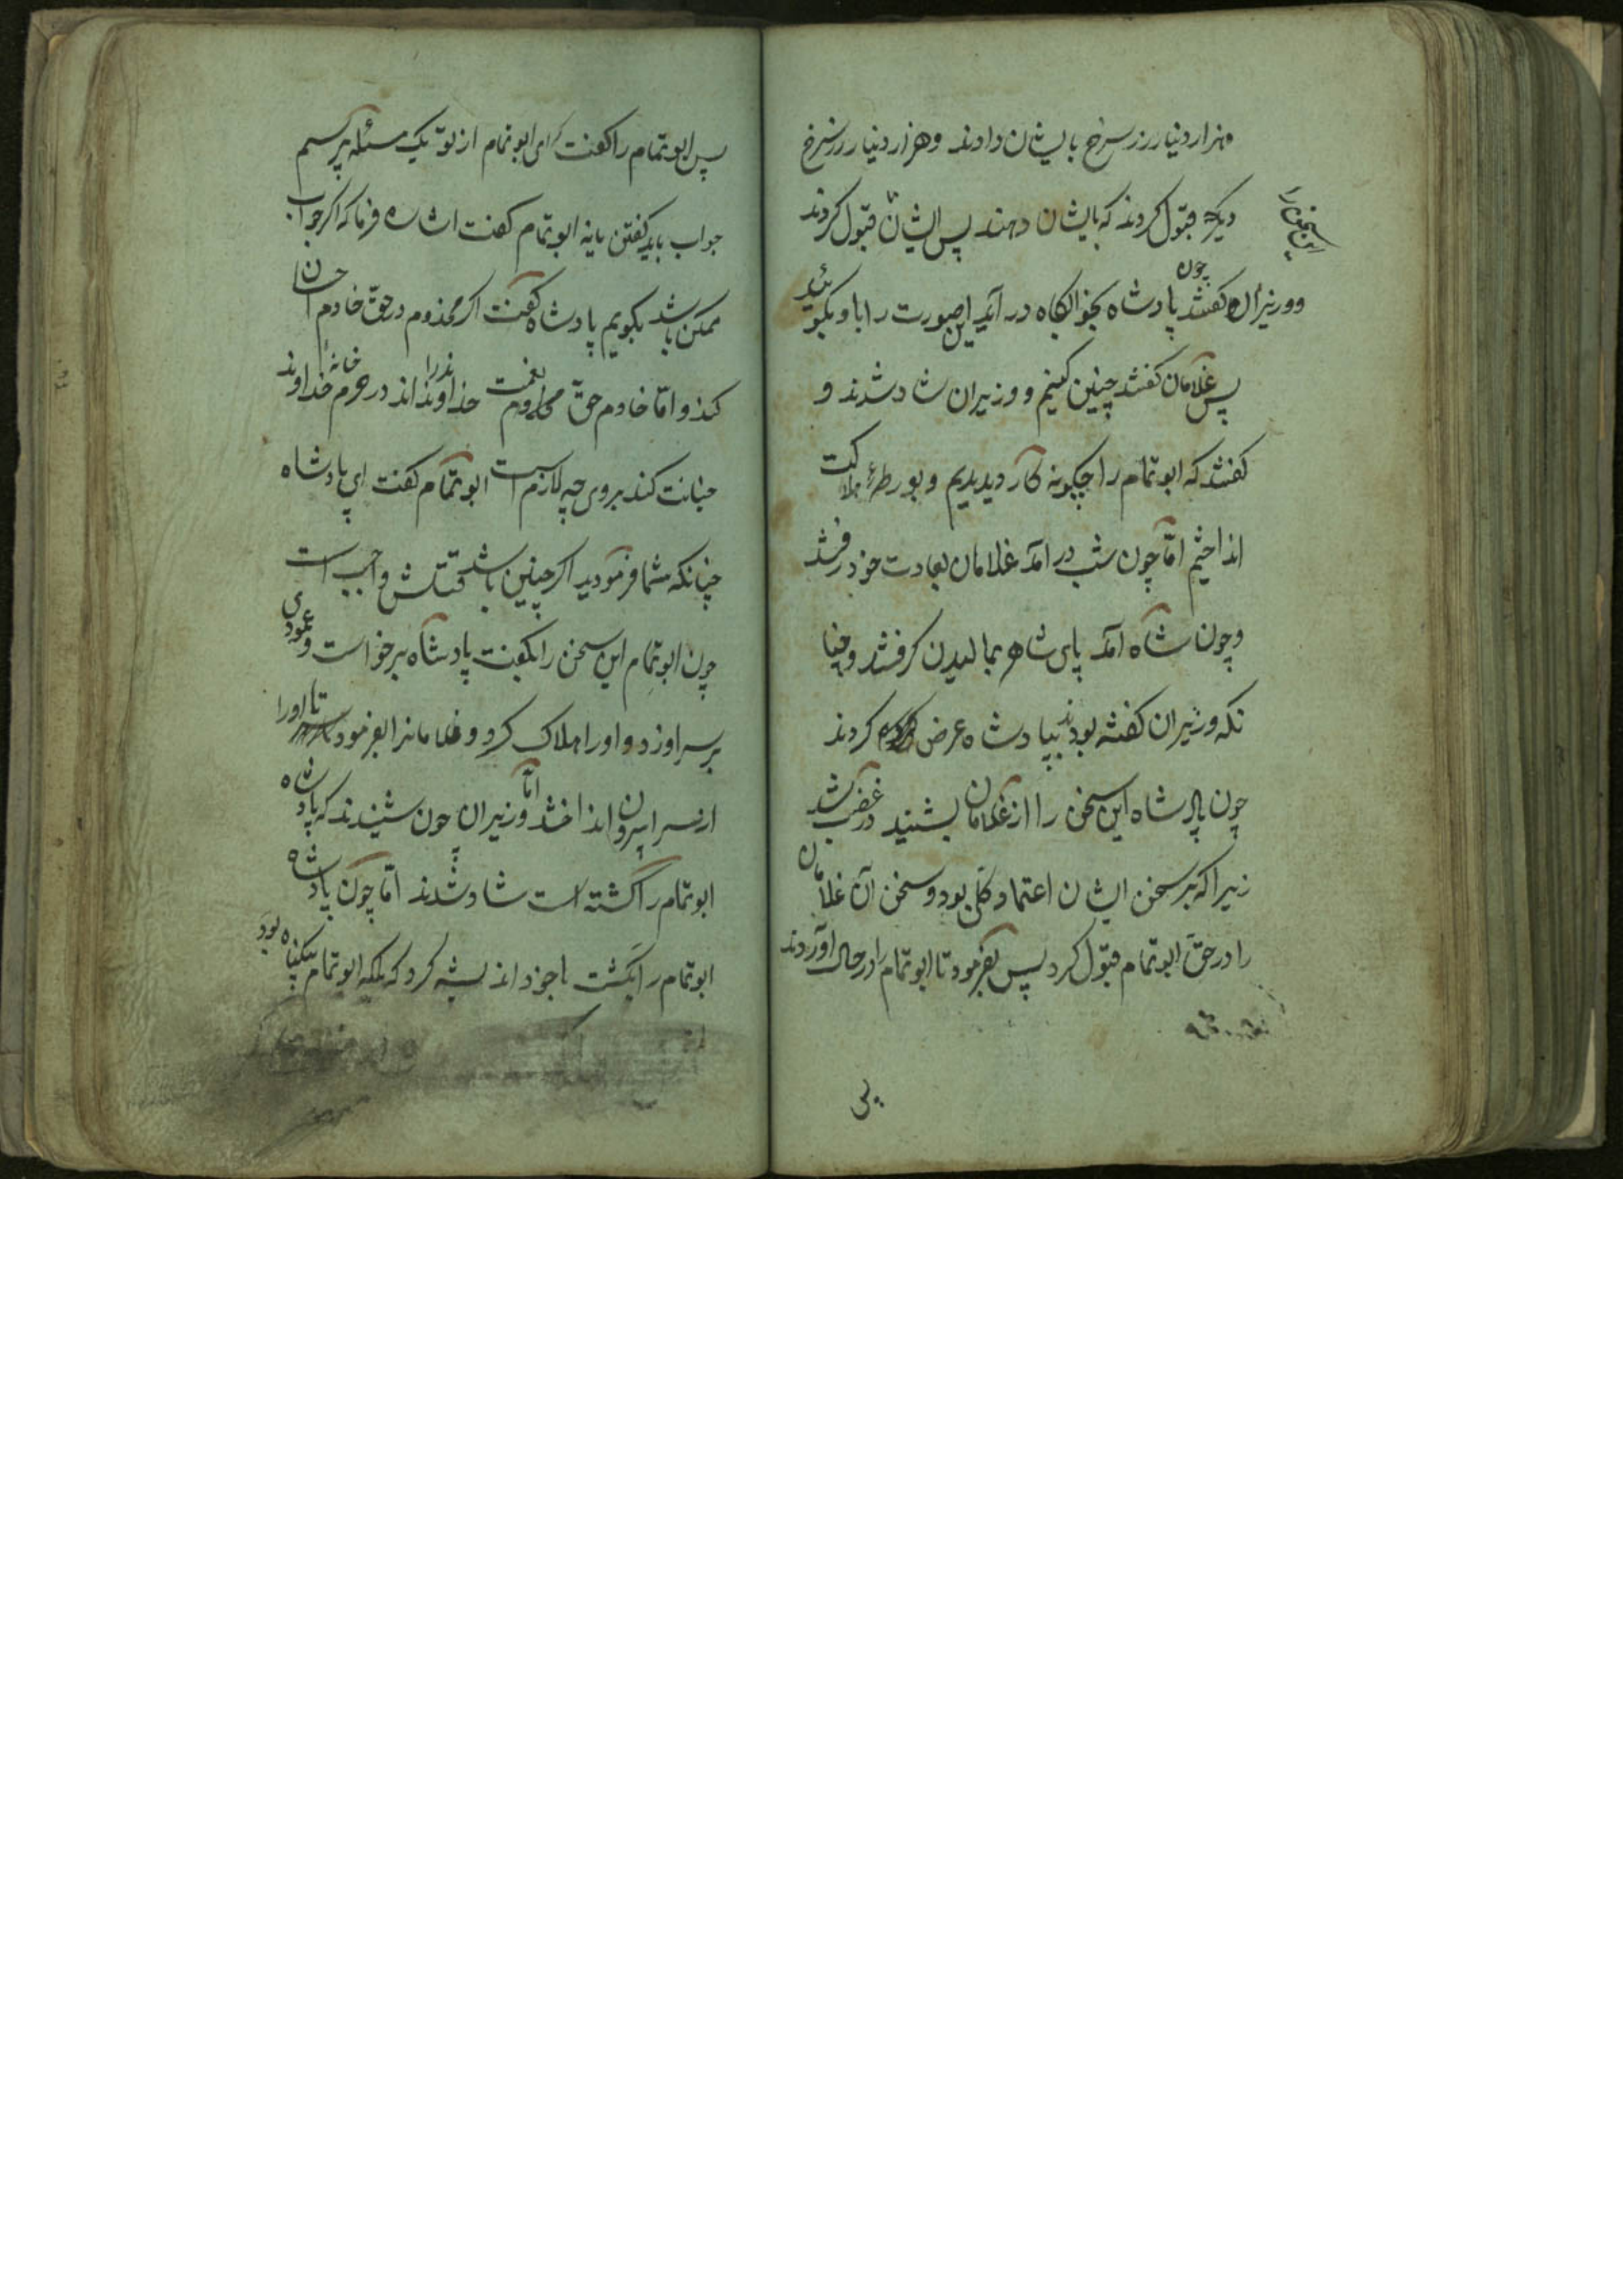 هزار دینار زر سرخ بایشان دادند وهزار دینار زر سرخ
دیگر قبول کردند که بایشان دهند پس ایشان قبول کردند
و وزیران گفتند چون پادشاه بخوابگاه در آید این صورت را باو بگوئید
پس غلامان گفتند چنین کنیم و وزیران شاد شدند و
گفتند که ابو تمام را چگونه کار دیدیم و بورطهٔ هلاکت
انداختیم امّا چون شب در آمد غلامان بعادت خود رفتند
وچون شاه آمد پای شاه بمالیدن گرفتند وچنا
نکه وزیران گفته بودند بپادشاه عرض کردند
چون پادشاه این سخن را از غلامان بشنید در غضب شد
زیرا که بر سخن ایشان اعتماد کلّی بود وسخن آن غلامان
را در حقّ ابو تمام قبول کرد پس بفرمود تا ابو تمام را در حال آوردند
پس ابو تمام را گفت که ای ابو تمام از تو یک مسئله پرسم
جواب باید گفتن یا نه ابو تمام گفت اشاره فرما که اگر جواب
ممکن باشد بگویم پادشاه گفت اگر مخدوم در حقّ خادم احسان
کند و امّا خادم حقّ نعمت خداوند را نداند در حرم خانهٔ خداوند
خیانت کند بر وی چه لازمست ابو تمام گفت ای پادشاه
چنانکه شما فرمودید اگر چنین باشد قتلش واجب است
چون ابو تمام این سخن را بگفت پادشاه برخواست وعمودی
بر سر او زد و اورا هلاک کرد و غلامانرا بفرمود تا اورا
از سرا بیرون انداختند امّا وزیران چون شنیدند که پادشاه
ابو تمام را کشته است شاد شدند امّا چون پادشاه
ابو تمام را بکشت با خود اندیشه کرد که بلکه ابو تمام بیگناه بود